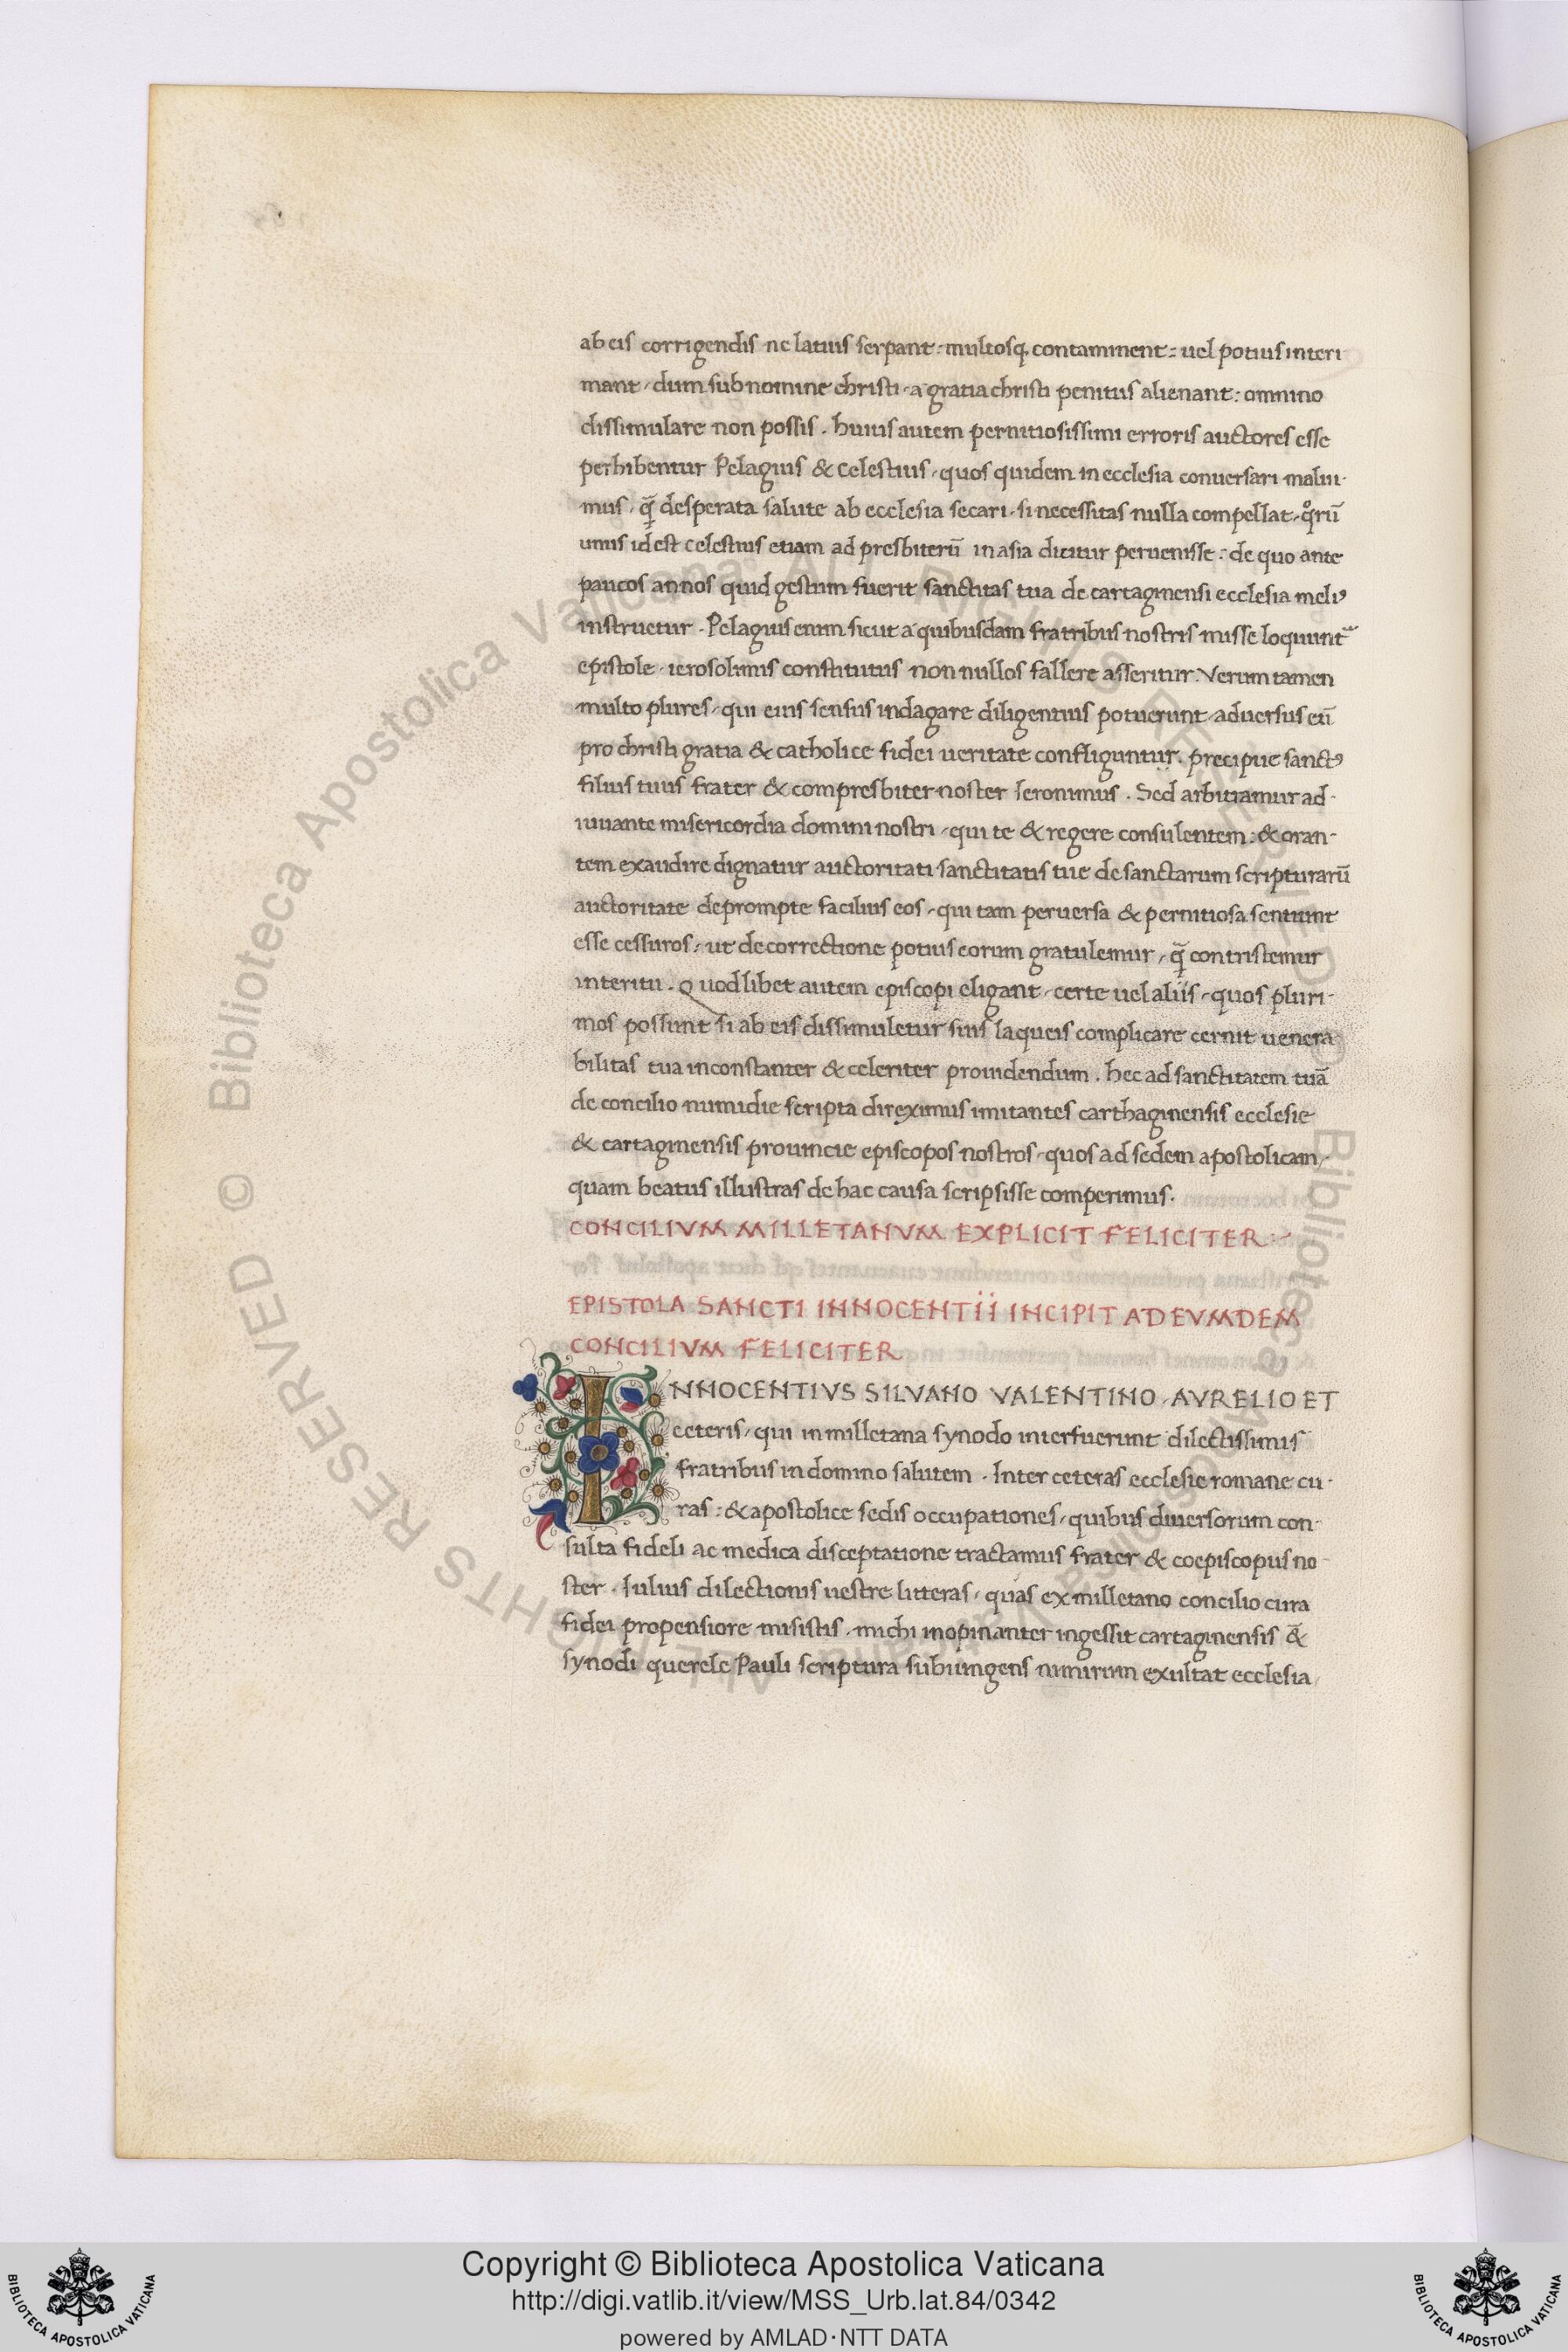 ab eis corrigendis ne latius serpant: multosq; contaminent: uel potius interi
mant, dum sub nomine christi, a gratia christi penitus alienant: omnino
dissimulare non possis. huius autem pernitiosissimi erroris auctores esse
perhibentur Pelagius & celestius, quos quidem in ecclesia conuersari malui-
mus, q̃ desperata salute ab ecclesia secari, si necessitas nulla compellat, qͦrũ
unus id est celestius etiam ad presbiterũ in asia dicitur peruenisse: de quo ante
paucos annos quid gestum fuerit sanctitas tua de cartaginensi ecclesia meliꝰ
instruetur. Pelagius enim sicut a quibusdam fratribus nostris misse loquunt᷑
epistole, ierosolimis constitutus non nullos fallere asseritur. Verum tamen
multo plures, qui eius sensus indagare diligentius potuerunt, aduersus eũ
pro christi gratia & catholice fidei ueritate confliguntur, precipue sanctꝰ
filius tuus frater & compresbiter noster Ieronimus. Sed arbitramur ad-
iuuante misericordia domini nostri, qui te & regere consulentem: & oran-
tem exaudire dignatur auctoritati sanctitatis tue de sanctarum scripturarũ
auctoritate deprompte facilius eos, qui tam peruersa & pernitiosa sentiunt
esse cessuros, ut de correctione potius eorum gratulemur, q̃ contristemur
interitu. Quodlibet autem episcopi eligant, certe uel aliis, quos pluri-
mos possunt si ab eis dissimuletur suis laqueis complicare cernit uenera
bilitas tua inconstanter & celeriter prouidendum. hec ad sanctitatem tuã
de concilio numidie scripta direximus imitantes carthaginensis ecclesie
& cartaginensis prouincie episcopos nostros, quos ad sedem apostolicam,
quam beatus illustras de hac causa scripsisse comperimus.
CONCILIVM MILLETANVM EXPLICIT FELICITER:
EPISTOLA SANCTI INNOCENTII INCIPIT AD EVMDEM
CONCILIVM FELICITER
INNOCENTIVS SILVANO VALENTINO, AVRELIO ET
ceteris, qui in milletana synodo interfuerunt dilectissimis
fratribus in domino salutem. Inter ceteras ecclesie romane cu-
ras: & apostolice sedis occupationes, quibus diuersorum con-
sulta fideli ac medica disceptatione tractamus frater & coepiscopus no-
ster. Iulius dilectionis uestre litteras, quas ex milletano concilio cura
fidei propensiore misistis, michi inopinanter ingessit cartaginensis &̃
synodi querele Pauli scriptura subiungens nimirum exultat ecclesia,
© Biblioteca Apostolica Vaticana ALL RIGHTS RESERVED
© Biblioteca Apostolica Vaticana ALL RIGHTS RESERVED
Copyright © Biblioteca Apostolica Vaticana
http://digi.vatlib.it/view/MSS_Urb.lat.84/0342
powered by AMLAD·NTT DATA
BIBLIOTECA APOSTOLICA VATICANA
BIBLIOTECA APOSTOLICA VATICANA